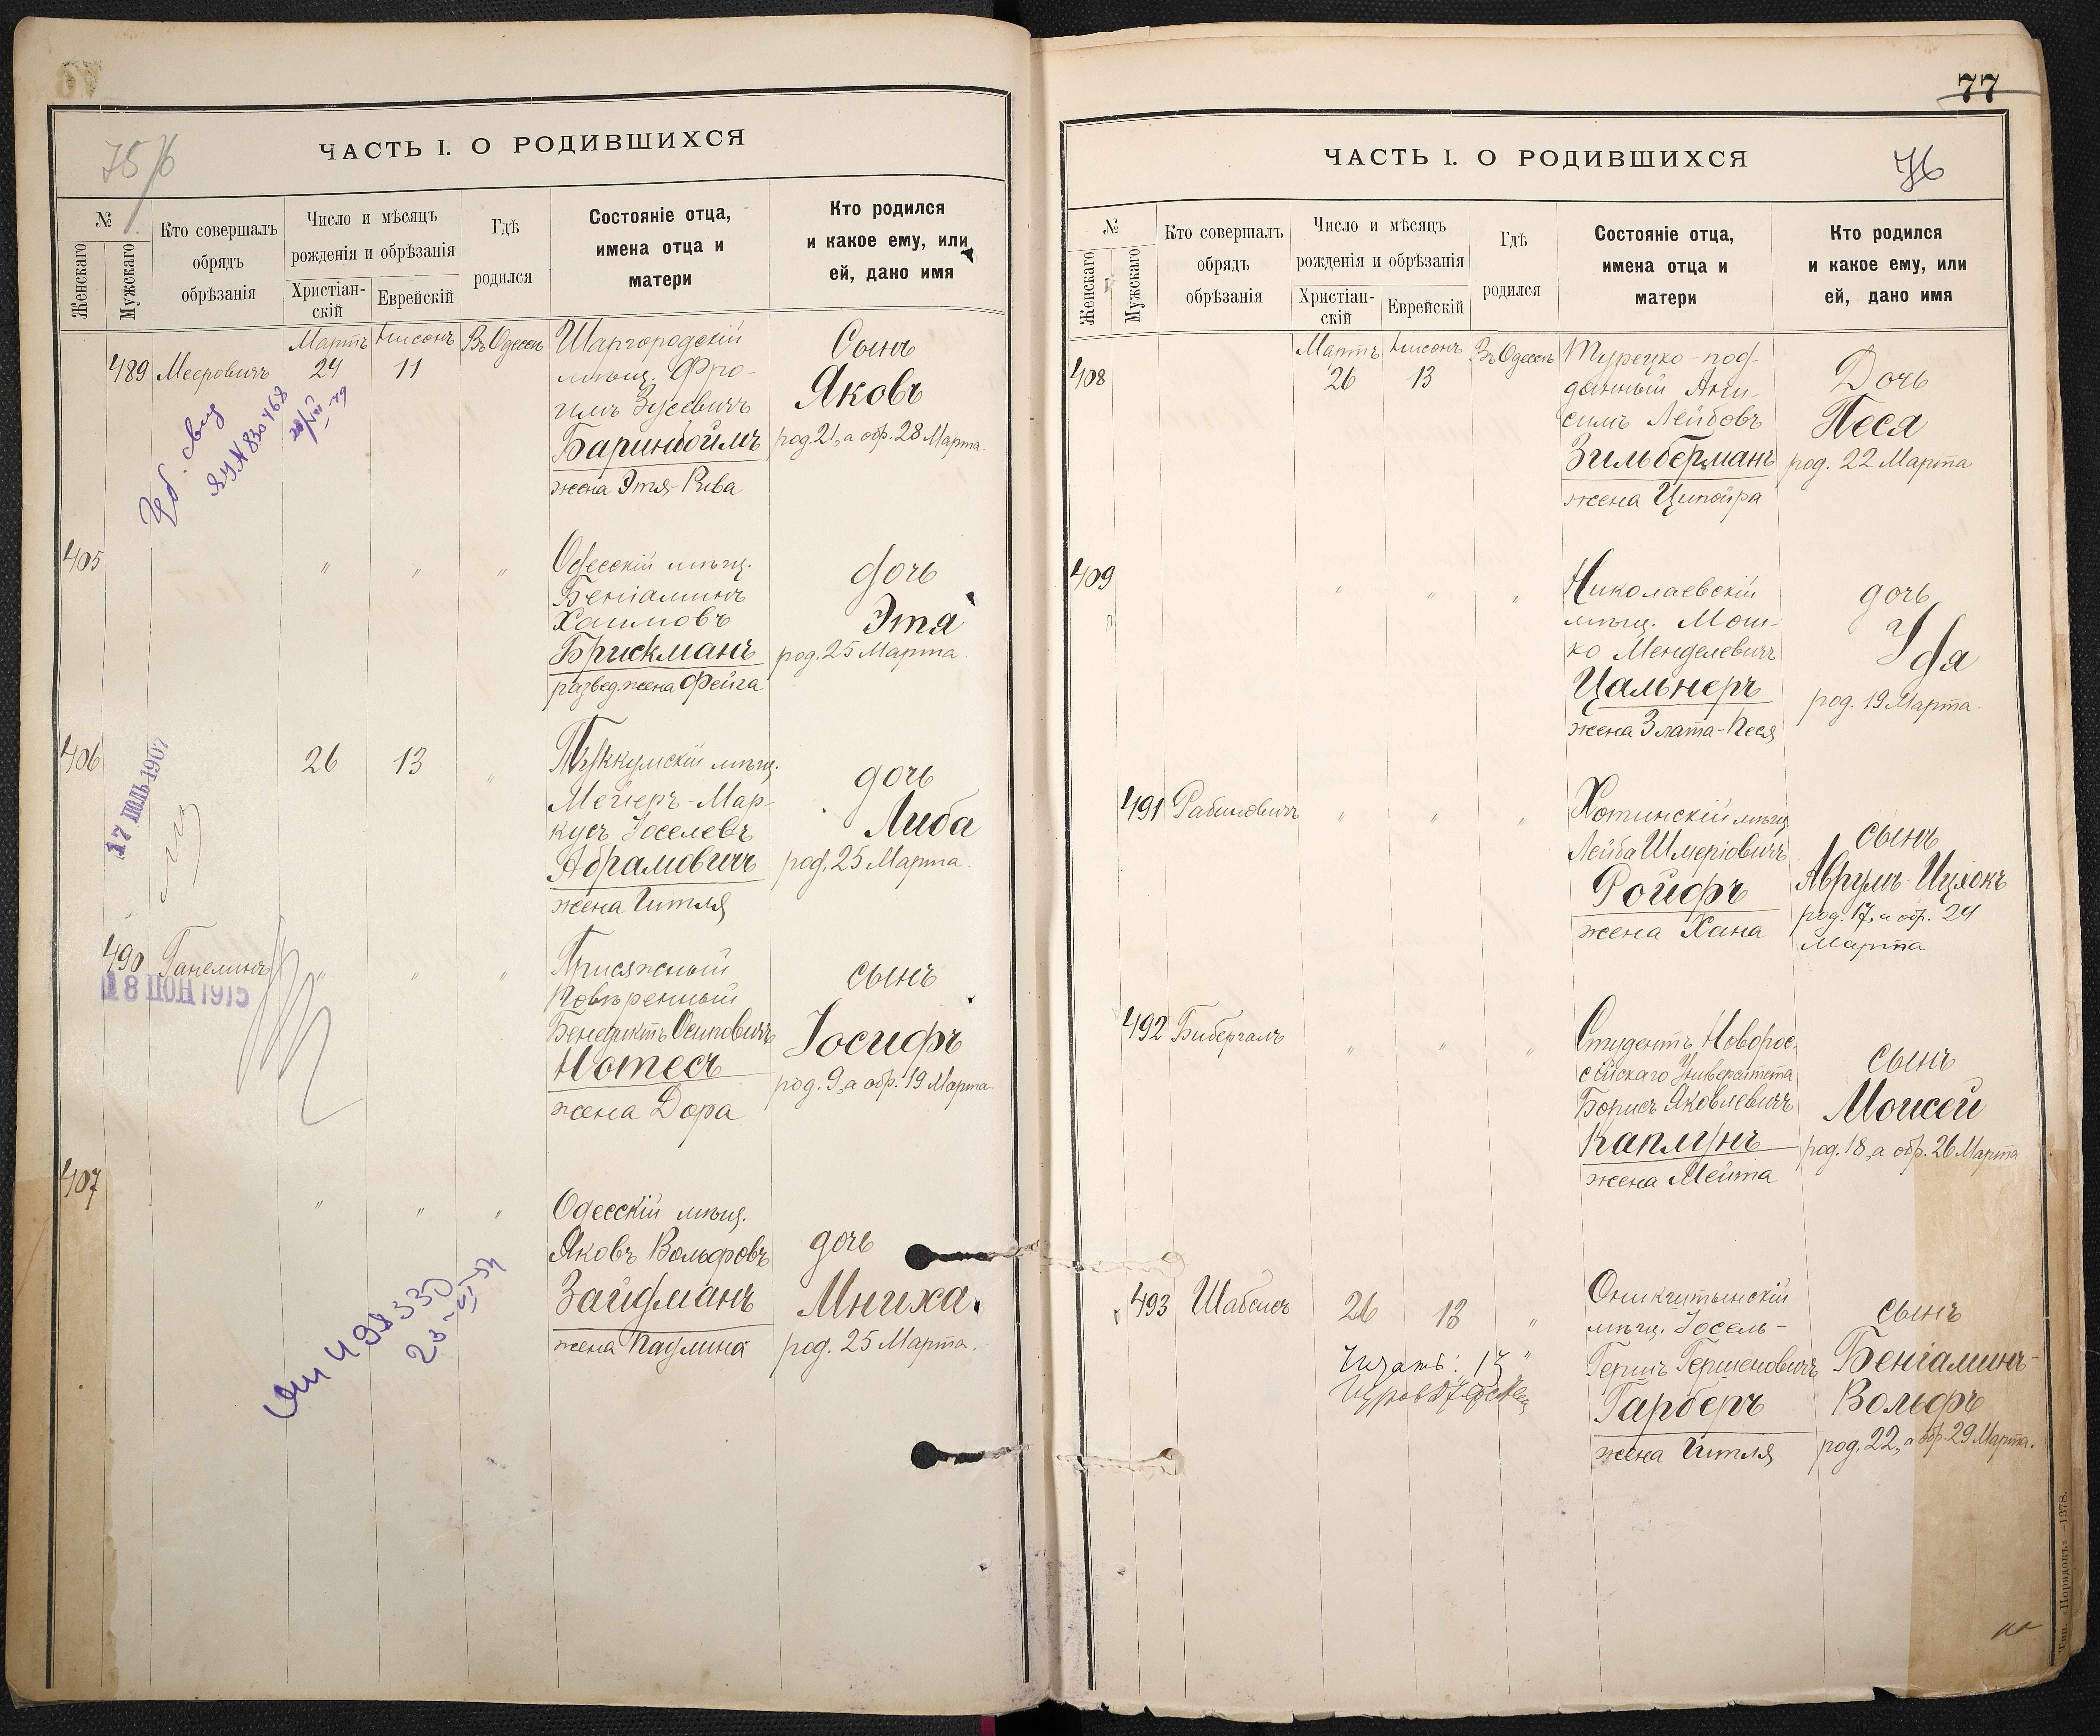 ЧАСТЬ I. О РОДИВШИХСЯ
№
Женскаго
Мужскаго
Кто совершалъ
обрядъ
обрѣзанія
Число и мѣсяцъ
рожденія и обрѣзанія
Христіан-
скій
Еврейскій
Гдѣ
родился
Состояніе отца,
имена отца и
матери
Кто родился
и какое ему, или
ей, дано имя
489
Мееровичъ
Мартъ
24
Нисонъ
11
Въ Одессѣ
Шаргородскій
мѣщ. Фро-
имъ Зусевичъ
Баринбоймъ
жена Этя-Рива
Сынъ
Яковъ
род. 21, а обр. 28 Марта.
405
"
"
"
Одесскій мѣщ.
Беніаминъ
Хаимовъ
Брискманъ
развед. жена Фейга
дочь
Этя
род. 25 Марта.
406
17 ІЮЛЬ 1907
26
13
"
Туккумскій мѣщ.
Мейеръ-Мар-
кусъ Іоселевъ
Абрамовичъ
жена Гитля
дочь
Либа
род. 25 Марта.
490
Ганелинъ
"
"
"
Присяжный
Повѣренный
Бенедиктъ Осиповичъ
Нотесъ
жена Дора
сынъ
Іосифъ
род. 9, а обр. 19 Марта.
407
"
"
"
Одесскій мѣщ.
Яковъ Вольфовъ
Зайдманъ
жена Паулина
дочь
Мниха
род. 25 Марта.
77
76
ЧАСТЬ I. О РОДИВШИХСЯ
№
Женскаго
Мужскаго
Кто совершалъ
обрядъ
обрѣзанія
Число и мѣсяцъ
рожденія и обрѣзанія
Христіан-
скій
Еврейскій
Гдѣ
родился
Состояніе отца,
имена отца и
матери
Кто родился
и какое ему, или
ей, дано имя
408
Мартъ
26
Нисонъ
13
Въ Одессѣ
Турецко-под-
данный Ани-
симъ Лейбовъ
Зильберманъ
жена Ципойра
Дочь
Песя
род. 22 Марта
409
"
"
"
Николаевскій
мѣщ. Мош-
ко Менделевичъ
Цальнеръ
жена Злата-Песя
дочь
Уда
род. 19 Марта.
491
Рабиновичъ
"
"
"
Хотинскій мѣщ.
Лейба Шмеріовичъ
Ройфъ
жена Хана
сынъ
Аврумъ-Ицхокъ
род. 17, а обр. 24
Марта
492
Бибергалъ
"
"
"
Студентъ Новорос-
сійскаго Университета
Борисъ Яковлевичъ
Каплунъ
жена Мейта
сынъ
Моисей
род. 18, а обр. 26 Марта.
493
Шабсисъ
26
13
"
Оникштынскій
мѣщ. Іосель-
Гершъ Гершеновичъ
Гарберъ
жена Гитля
сынъ
Беніаминъ-
Вольфъ
род. 22, а обр. 29 Марта.
Тип. «Порядокъ»—1378.